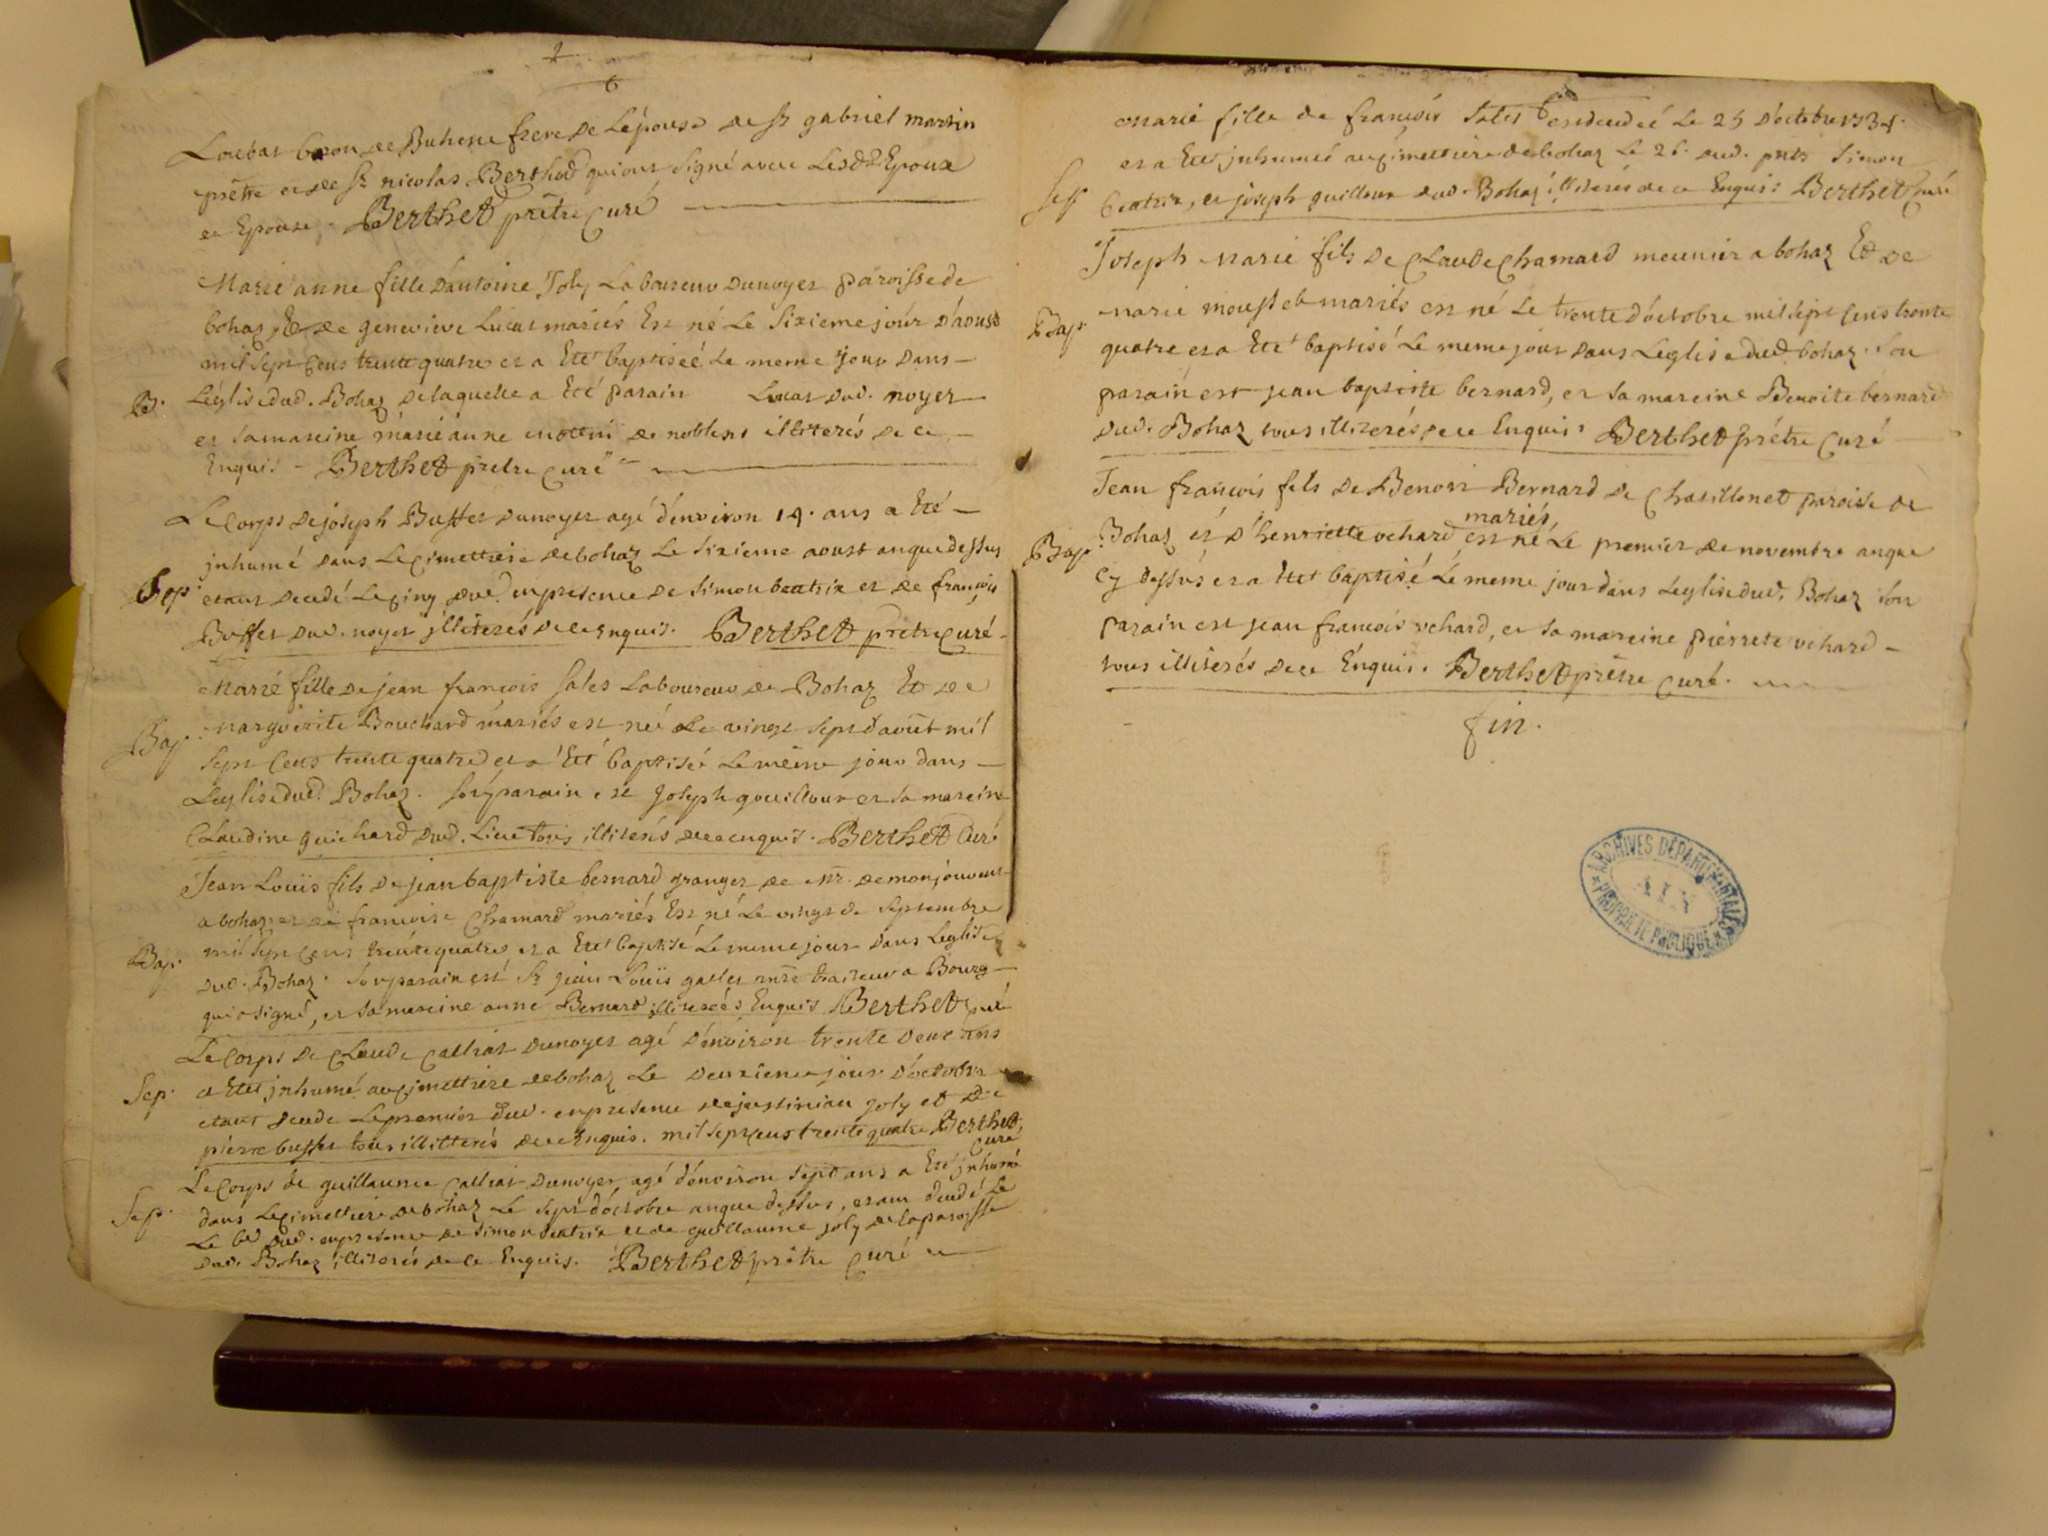 frere de Lépouse de Sr gabriel martin
prêtre et de Sr nicolas Berthod qui ont signé avec Lesdt Epoux
et Epouse. Berthet prêtre Curé
Marie anne fille d'antoine Joly Laboureur du noyer paroisse de
bohaz, Et de genevieve Lucas mariés Est né Le Sixieme jour d'aoust
mil sept cens trente quatre et a Eté baptiseé Le meme jour dans
B. Léglise dud. Bohaz de laquelle a Eté parain Lucas dud. noyer
et sa mareine marie anne de noblens illiterés de ce
Enquis - Berthet prêtre curé
Le Corps de joseph Buffet du noyer agé d'environ 14. ans a Eté
jnhumé dans Le Cimettiere de bohaz Le Sixieme aoust an que dessus
Sep. etant decedé Le cinq dud. en presence de Simon beatrix et de françois
Buffet dud. noyer jlliterés de ce enquis. Berthet prêtre curé
Marie fille de jean françois sales Laboureur de Bohaz Et de
Bap. marguerite Bouchard mariés est né Le vingt sept d'aout mil
Sept Cens trente quatre et a Eté baptisé Le meme jour dans
Léglise dud. Bohaz. Son parain est Joseph gouilloux et sa mareine
Claudine guichard dud. Lieu tous illiterés de ce enquis. Berthet Curé
Jean Louis fils de jean baptiste bernard granger de mr. de monjouvent
a bohaz et de francoise Chamard mariés Est né Le vingt de Septembre
Bap. mil sept cens trente quatre et a Eté baptisé Le meme jour dans Leglise
dud. Bohaz. Son parain est Sr jean Louis galles mtre traiteur a Bourg
qui a signé, et sa mareine anne Bernard illiterées Enquis Berthet curé
Le Corps de Claude Calliat du noyer agé d'environ trente deux ans
Sep. a Eté jnhumé au cimettiere de bohaz Le deuxieme jour d'octobre
etant decedé Le premier dud. en presence de justinian joly et de
pierre buffet tous illitterés de ce Enquis. mil sept cens trente quatre Berthet
curé
Le Corps de guillaume Calliat du noyer agé d'environ sept ans a Eté jnhumé
Sep. dans Le cimettiere de bohaz Le sept d'octobre an que dessus, etant decedé Le
Le 6e dud. en presence de Simon beatrix et de guillaume joly de la paroisse
dud. Bohaz illiterés de ce Enquis. Berthet prêtre Curé
marie fille de françois Sales est decedeé Le 25 d'octobre 1734.
et a Eté jnhumeé au cimettiere de bohaz Le 26. dud. pnts Simon
Sep beatrix, et joseph guilloux dud. Bohaz illiterés de ce Enquis. Berthet Curé
Joseph marie fils de Claude Chamard meunier a bohaz Et de
Bap. marie mousset mariés est né Le trente d'octobre mil sept Cens trente
quatre et a Eté baptisé Le meme jour dans Léglise dud. bohaz. Son
parain est jean baptiste bernard, et sa mareine Benoite bernard
dud. Bohaz tous illiterés de ce Enquis. Berthet prêtre Curé
Jean francois fils de Benoit Bernard de Chatillonet paroisse de
mariés
Bap. Bohaz et d'henriette vehard est né Le premier de novembre an que
Cy dessus et a Eté baptisé Le meme jour dans Léglise dud. Bohaz son
parain est jean francois vehard, et sa mareine pierrete vehard
tous illiterés de ce Enquis. Berthet prêtre Curé.
fin.
ARCHIVES DÉPARTEMENTALES
AIN
PROPRIÉTÉ PUBLIQUE